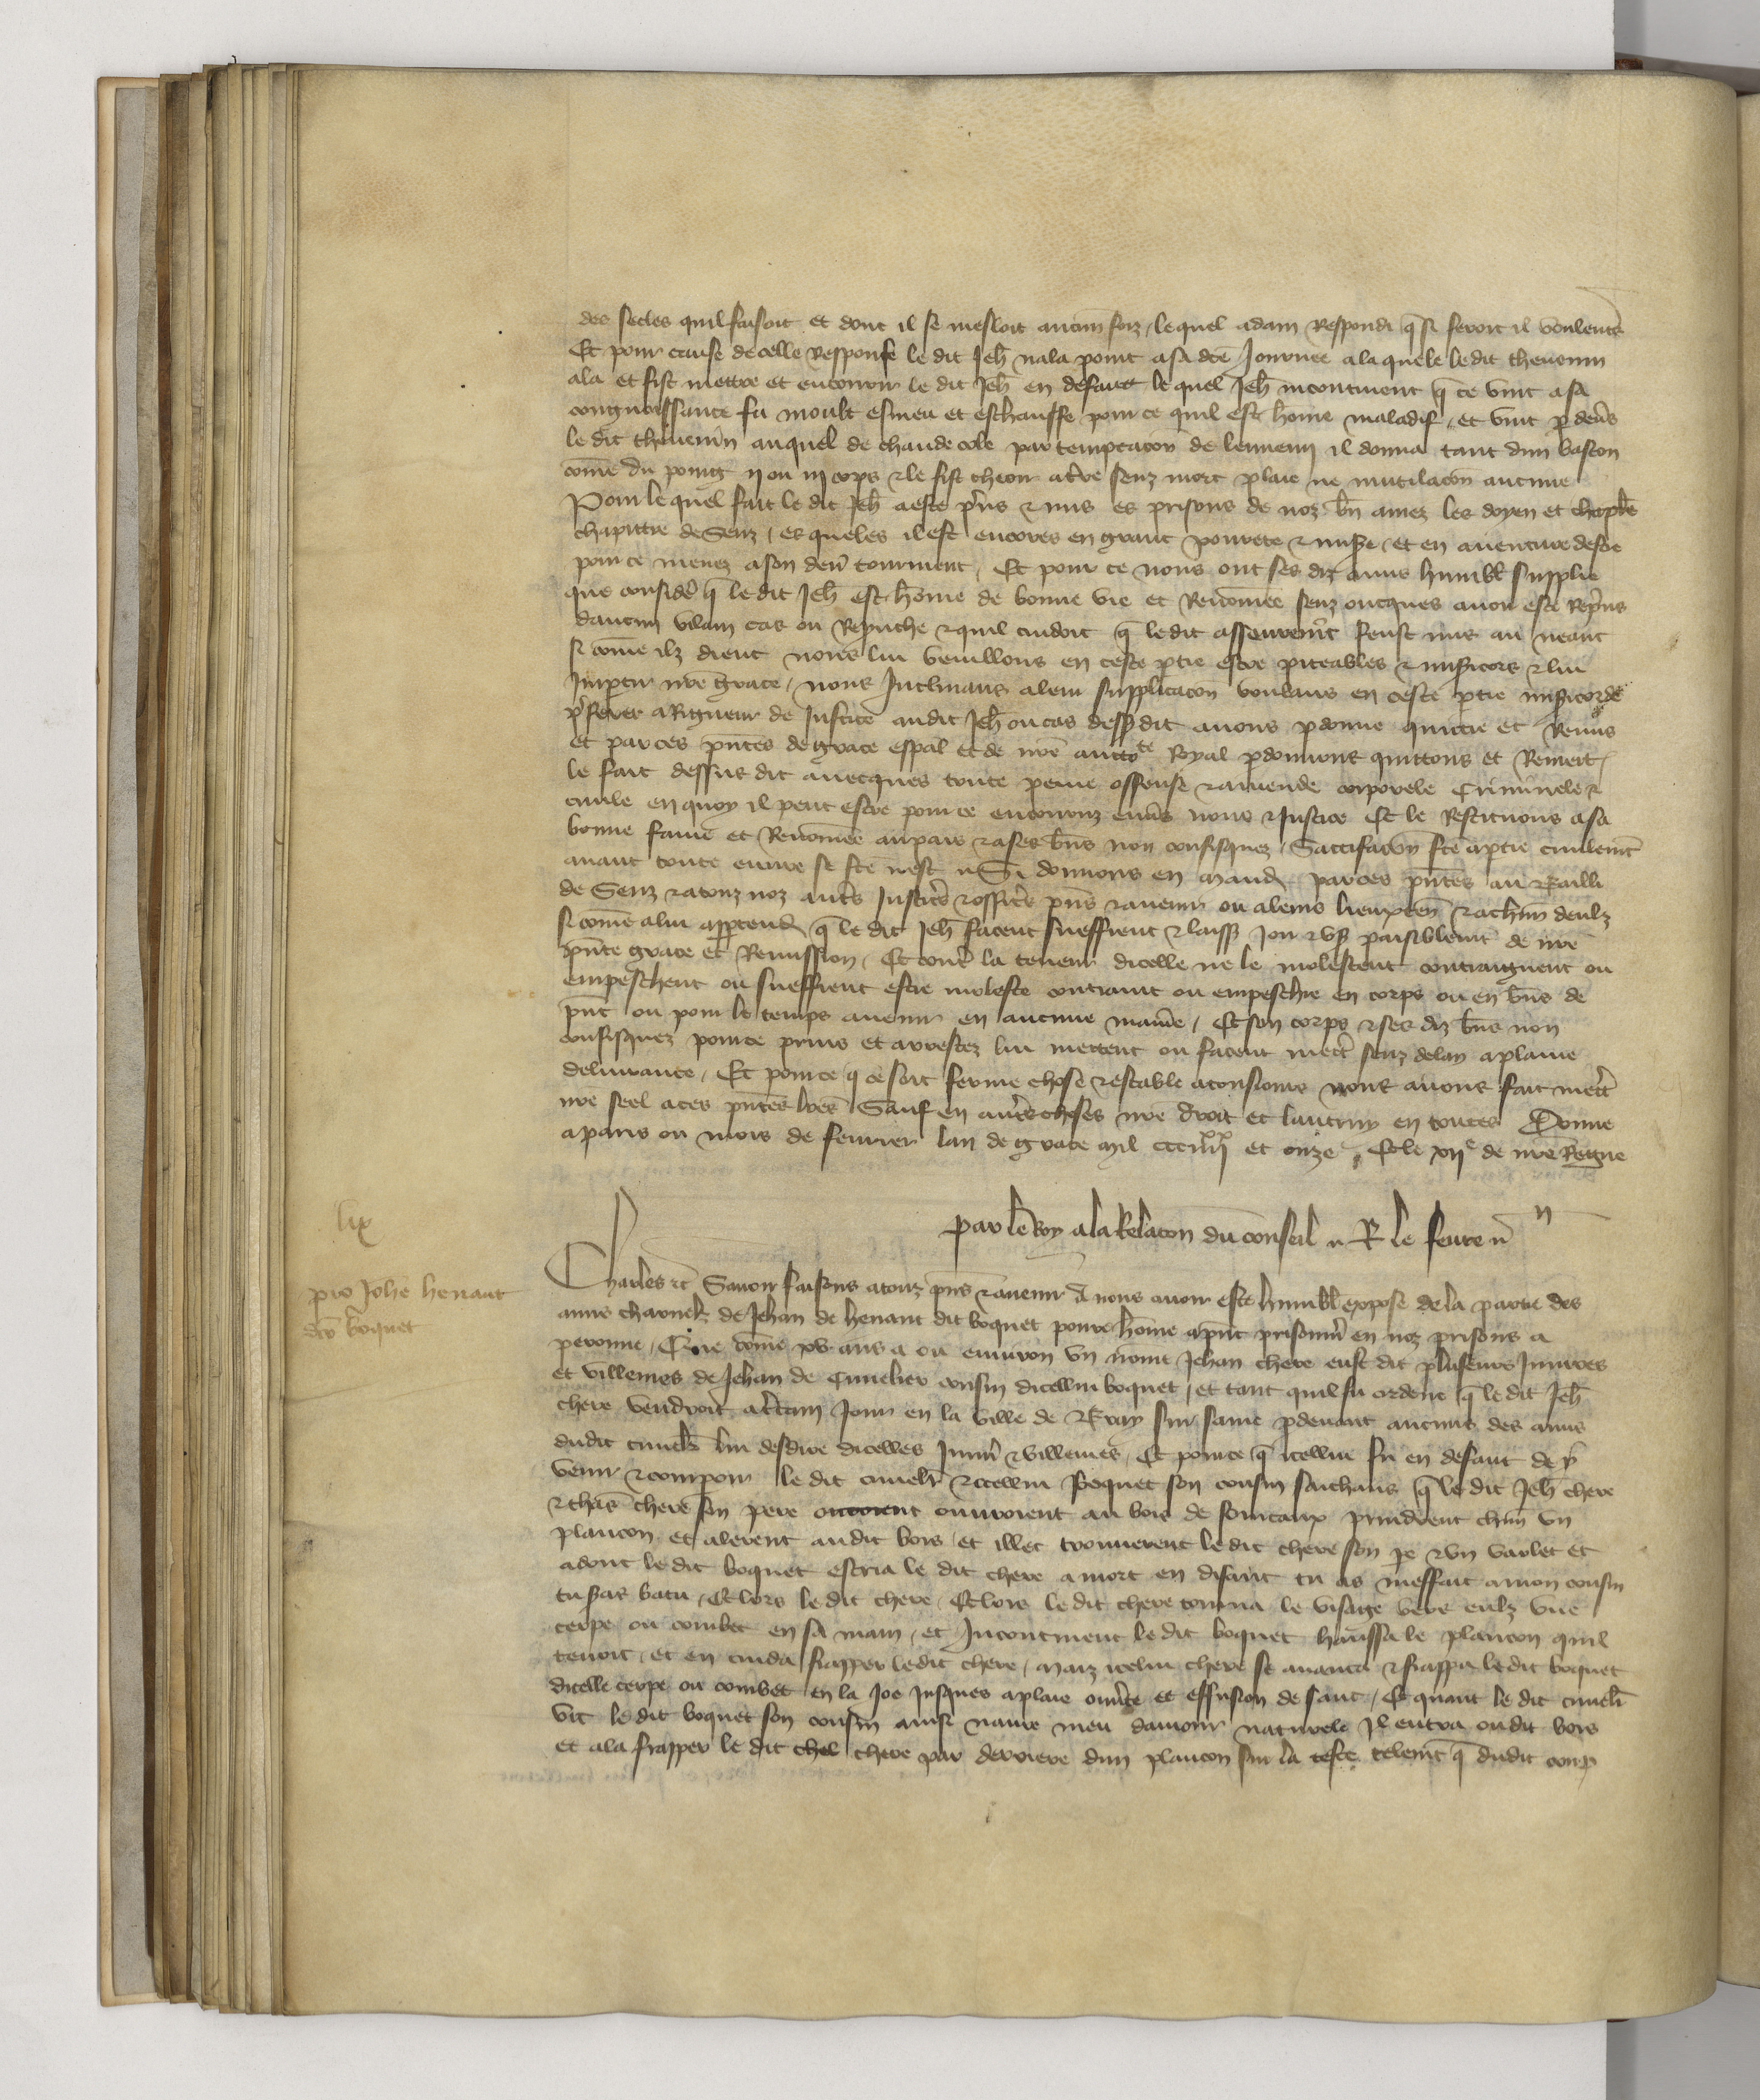 des secles quil faisoit et dont il se mesloit aucun foiz / lequel adam Respondi q̄ si feroit il voulent̄s
Et pour cause de celle Response le dit Jeh̄ nala point a sa dc̄e Journee a la quele le dit theuenin
ala et fist mettre et encourir le dit Jeh̄ en defaut le quel Jeh̄ incontinent q̄ ce vint a sa
congnoissance fu moult esmeu et eschauffe pour ce quil est hōme maladif / et vint p̄ deūs
le dit theuenin auquel de chaude cole par temptacōn de lennemi il donna tant dun baston
cōme du poing ij ou iij cops & le fist cheoir a t̄re senz mort plaie ne mutilacōn aucune
Pour le quel fait le dit Jeh̄ a este p̄ns & mis es prisons de noz bn̄ amez les doyen et chap̄
chapittre de Senz / es queles il est encores en grant pourete & mis̄e / et en auenture destre
pour ce menez a son den̄ tourment / Et pour ce nous ont ses diz amis humbl̄ supplie
que consider̄ q̄ le dit Jeh̄ est hōme de bonne vie et Renōmee senz oncques auoir este Rep̄ns
daucun vilain cas ou Reprouche & quil cuidoit q̄ le dit asseurem̄t feust mis au neant
si cōme ilz dient nous lui veuillons en ceste p̄tie estre piteables & misicors & lui
Impartir nr̄e grace / nous Inclinans a leur supplicacōn voulans en ceste p̄tie misicorde
p̄ferer a Rigueur de Justice audit Jeh̄ ou cas dessus dit auons p̄donne quittie et Remis
et par ces pn̄tes de grace esp̄al et de nr̄e auctote Royal p̄donnons quittons et Remett̄
le fait dessus dit auecques toute peine offense & amende corporele Criminele &
ciuile en quoy il peut estre pour ce encouruz enūs nous & Justice Et le Restituons a sa
bonne fame et Renōmee au pais & a ses bn̄s non confisquez / Sattisfacōn fc̄e a p̄tie ciuilem̄t
auant toute euure se fc̄e nest Si donnons en mand̄ par ces pn̄tes au Bailli
de Senz & a touz noz aut̄s Justic̄s & offic̄s pn̄s & auenir ou a leurs lieuxten̄ & a chūn deulz
si cōme a lui app̄tend̄ q̄ le dit Jeh̄ facent sueffrent & laiss̄ Joir & vs̄ paisiblem̄t de nr̄e
pn̄te grace et Remission / Et cont̄ la teneur dicelle ne le molestent contraignent ou
empeschent ou sueffrent estre moleste contraint ou empeschie en corps ou en bn̄s de
pn̄t ou pour le temps auenir en aucune maniē / Et son corps & ses diz bn̄s non
confisquez pour ce prins et arrestez lui mettent ou facent mett̄ senz delay a plaine
deliurance / Et pour ce q̄ ce soit ferme chose & estable a tousiours nous auons fait mett̄
nr̄e seel a ces pn̄tes lr̄es Sauf en aut̄s choses nr̄e droit et lautruy en toutes Donne
a paris ou mois de feurier lan de grace mil ccciiijxx et onze / Et le xije de nr̄e Regne
par le Roy a la Relacōn du conseil R le feure
lix
pro Johē henaut
dc̄o boquet
Charles &c̄ Sauoir faisons a touz pn̄s & auenir A nous auoir este humbl̄ expose de la partie des
amis charnelz de Jehan de henaut dit boquet poure hōme a pn̄t prisonn̄ en noz prisons a
peronne / Que cōme xv ans a ou enuiron vn nōme Jehan chere eust dit plusieurs Iniures
et villenies de Jehan de Cuuelier cousin dicellui boquet / et tant quil fu ordene q̄ le dit Jeh̄
chere vendroit a c̄tain Jour en la ville de Bray sur sōme p̄deuant aucuns des amis
dudit cuuel̄ lui desdire dicelles Iniur̄ & villenies / Et pour ce q̄ icellui fu en defaut de y
venir & comparoir le dit cuuel̄ & icellui Boquet son cousin saichans q̄ le dit Jeh̄ chere
& thās chere son pere ouuroient au bois de princdrent chūn vn
plancon et alerent audit bois et illec trouuerent le dit chere son pe & vn varlet et
adont le dit boquet escria le dit chere a mort en disant tu as meffait a mon cousin
tu s̄as batu / Et lors le dit chere / Et lors le dit chere tourna le visage vers eulz vne
cerpe ou courbet en sa main / et Incontinent le dit boquet haussa le plancon quil
tenoit / et en cuida frapper ledit chere / maiz icelui chere se auanca & frappa le dit boquet
dicelle cerpe ou courbet en la Joe Jusques a plaie ouūte et effusion de sanc / Et quant le dit cuuel̄
vit le dit boquet son cousin ainsi naure meu damour naturele Il entra oudit bois
et ala frapper le dit chere par derriere dun plancon sur la teste telem̄t q̄ dudit coup